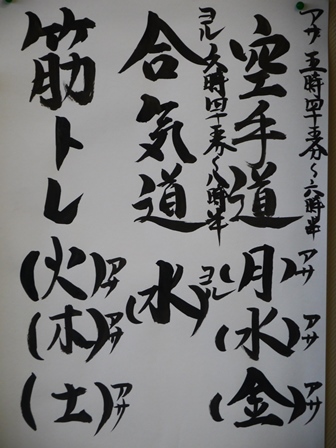 アサ 五時四十五分〜六時半
空手道 (月)アサ (水)アサ (金)アサ
ヨル 六時四十五分〜八時半
合気道 (水)ヨル
筋トレ (火)アサ (木)アサ (土)アサ